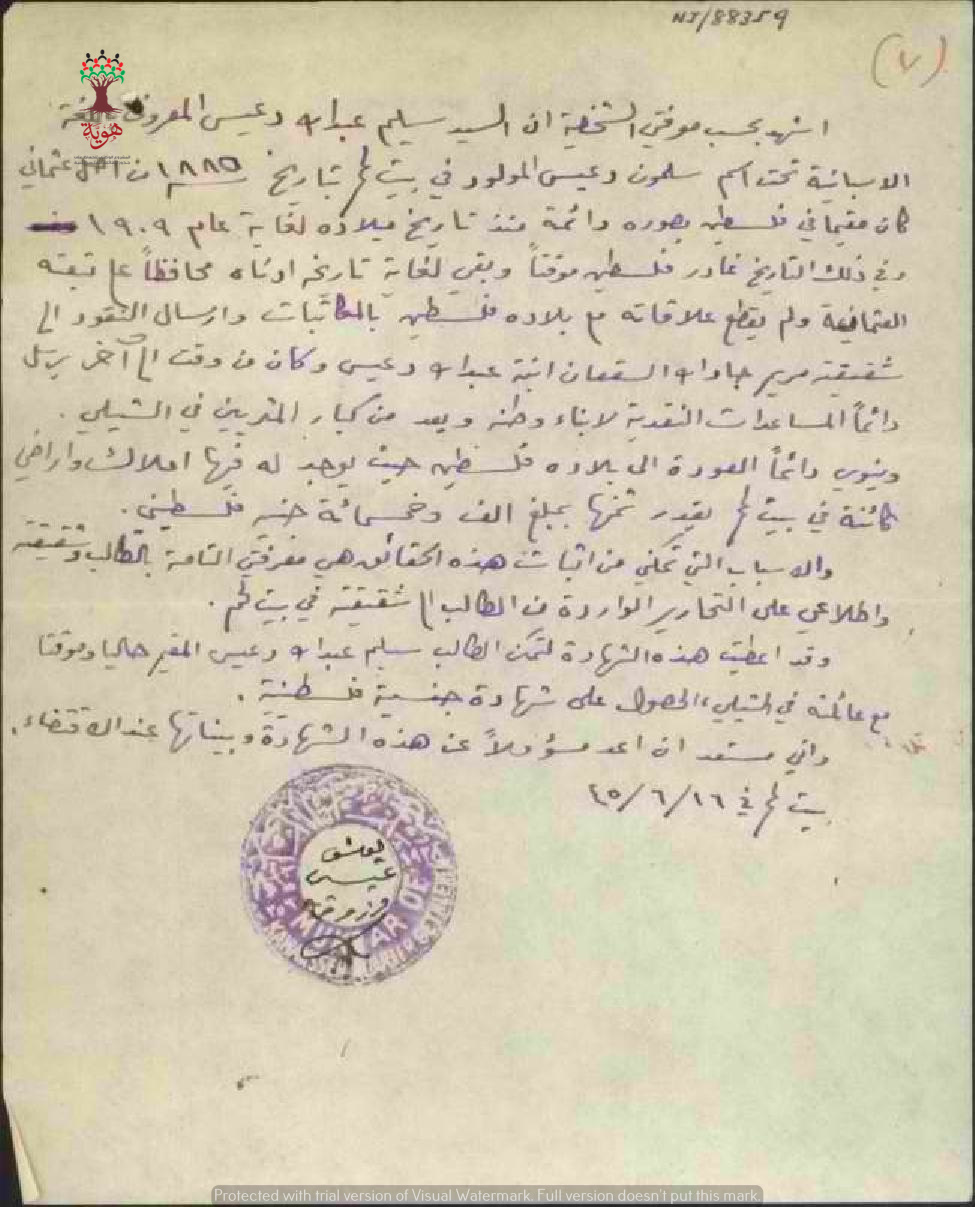 NJ/88359
(٧)
هوية
اشهد بحسب معرفتي الشخصية ان السيد سليم عبدالله دعيس المعروف باللغة
الاسبانية تحت اسم سلمون دعيس المولود في بيت لحم بتاريخ ١٨٨٥ من اصل عثماني
كان مقيما في فلسطين بصوره دائمة منذ تاريخ ميلاده لغاية عام ١٩٠٩
وفي ذلك التاريخ غادر فلسطين موقتاً وبقي لغاية تاريخه ادناه محافظاً على تبعته
العثمانية ولم يقطع علاقاته مع بلاده فلسطين بالمكاتبات وارسال النقود الى
شقيقته مريم جادالله السقعان ابنة عبدالله دعيس وكان من وقت الى آخر يرسل
دائماً المساعدات النقدية لابناء وطنه ويعد من كبار المغتربين في التشيلي .
وينوي دائماً العودة الى بلاده فلسطين حيث يوجد له فيها املاك واراضي
كائنة في بيت لحم يقدر ثمنها بمبلغ الف وخمسمائة جنيه فلسطيني .
والاسباب التي تمكني من اثبات هذه الحقائق هي معرفتي التامة بالطالب وشقيقته
واطلاعي على التحارير الواردة من الطالب الى شقيقته في بيت لحم .
وقد اعطيت هذه الشهادة لتمكن الطالب سليم عبدالله دعيس المقيم حاليا وموقتا
مع عائلته في التشيلي الحصول على شهادة جنسية فلسطينية .
واني مستعد ان اعد مسؤولاً عن هذه الشهادة وبيناتها عند الاقتضاء .
بيت لحم في ١٦/٦/٤٥
عيسى
MUKHTAR OF
Protected with trial version of Visual Watermark. Full version doesn't put this mark.